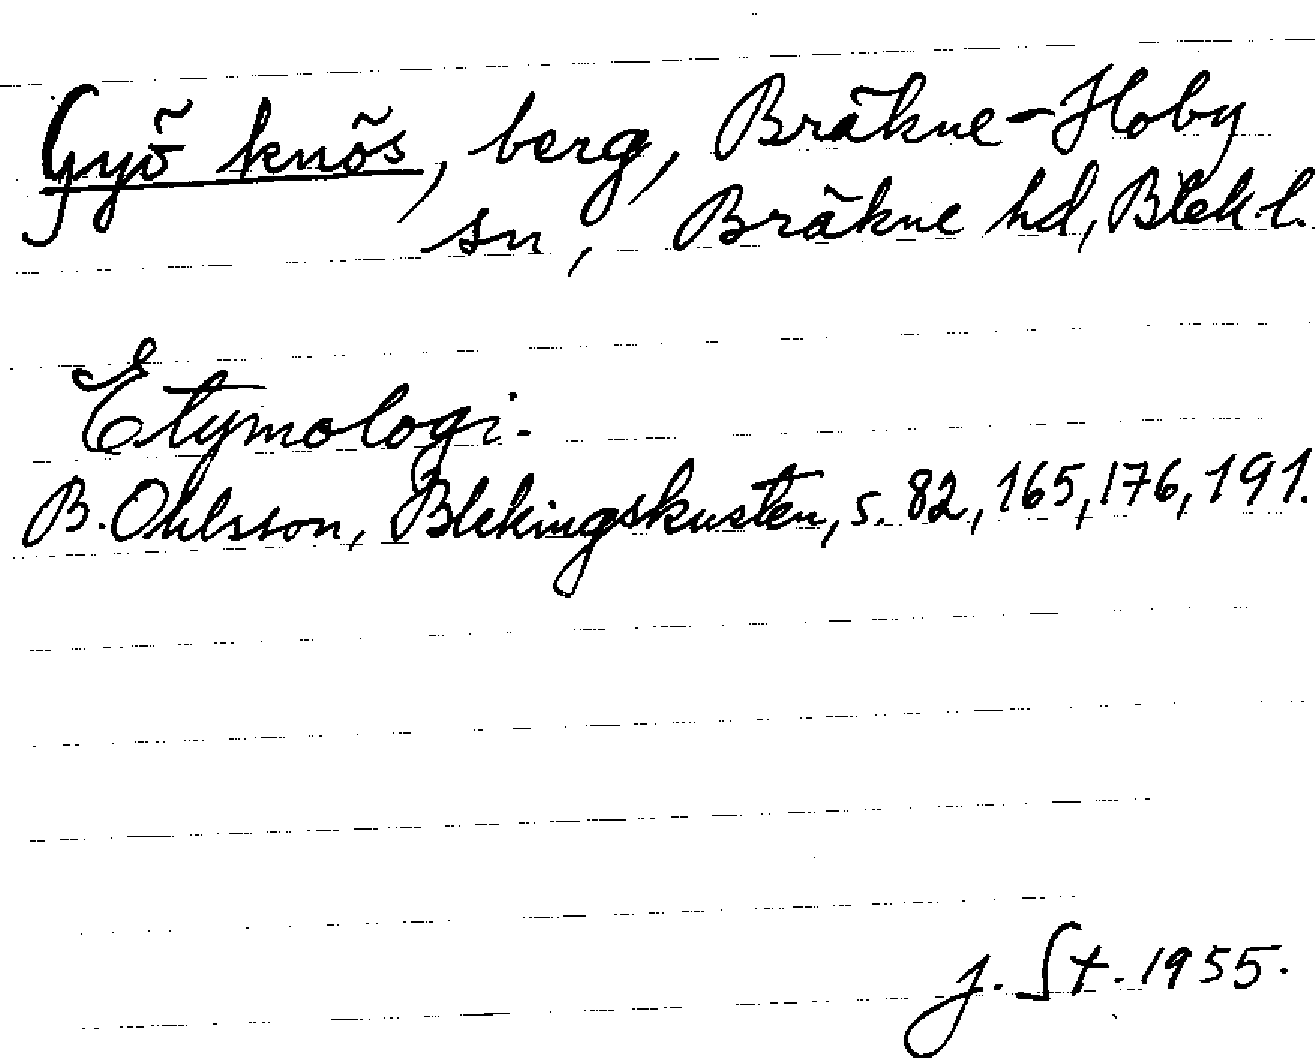 Gyö knös, berg, Bräkne-Hoby
sn, Bräkne hd, Blek. l.
Etymologi.
B. Ohlsson, Blekingskusten, s. 82, 165, 176, 191.
J. St. 1955.